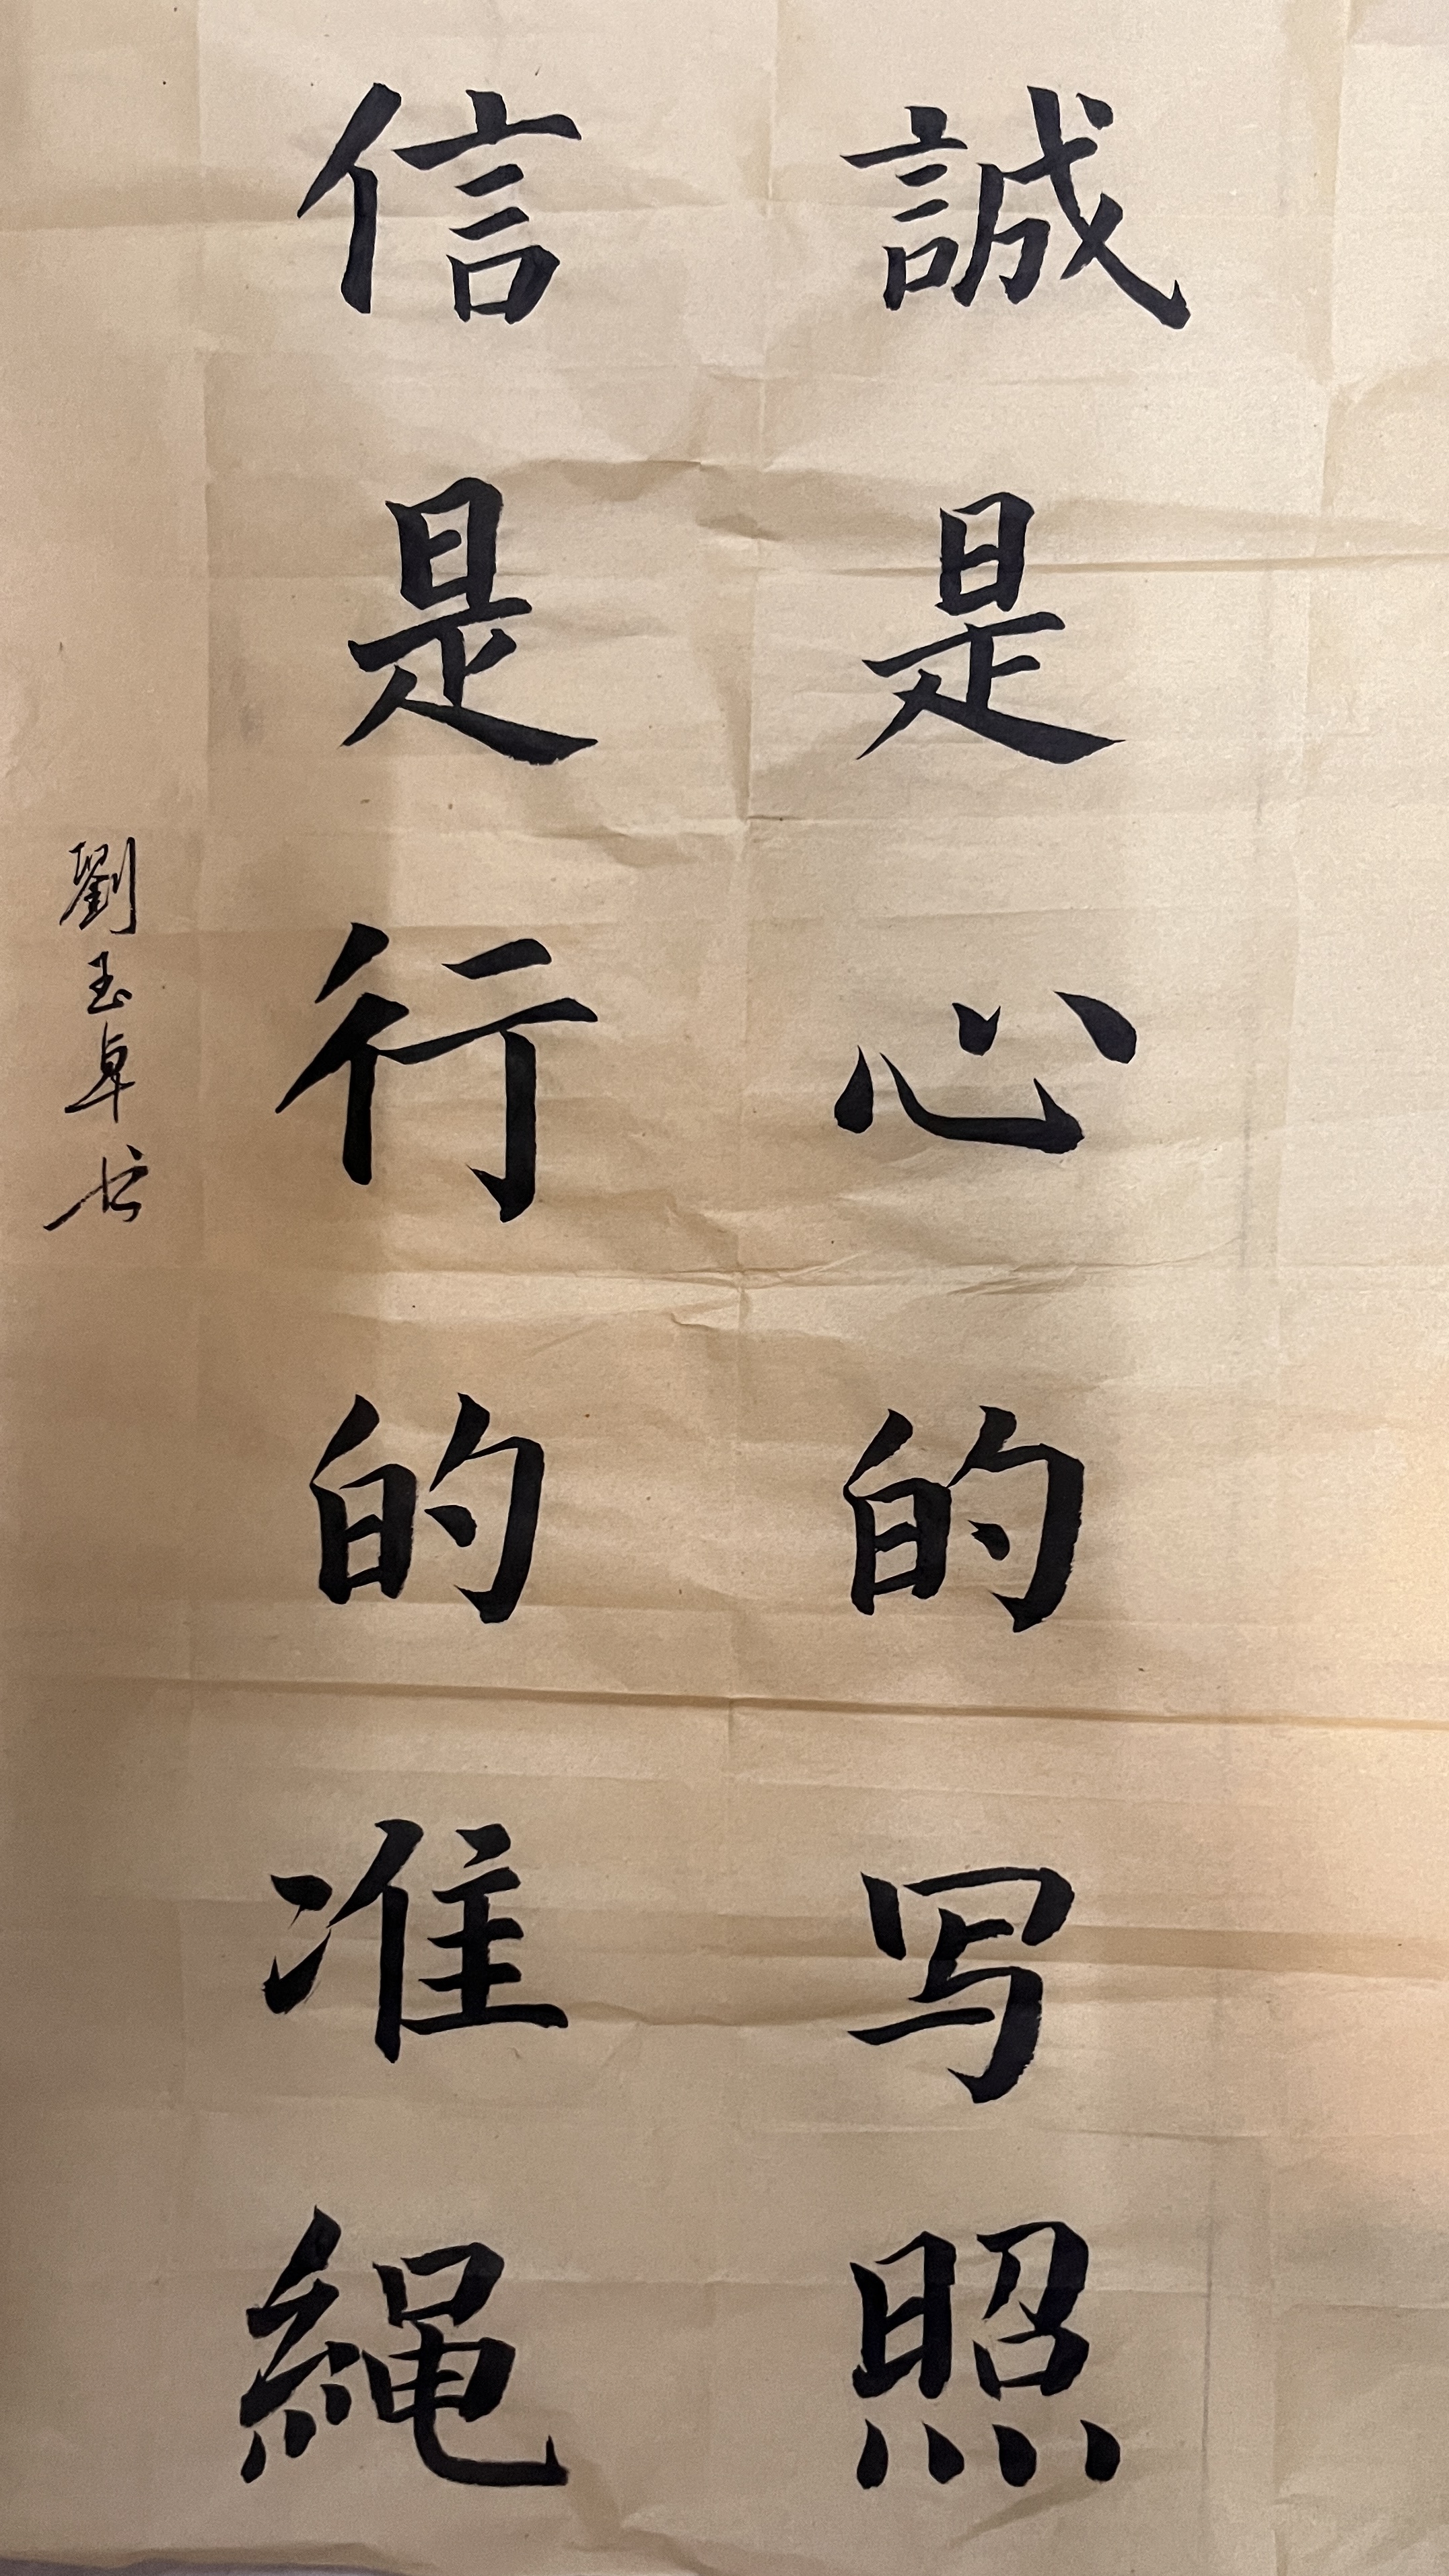 誠是心的写照
信是行的准繩
劉玉卓书